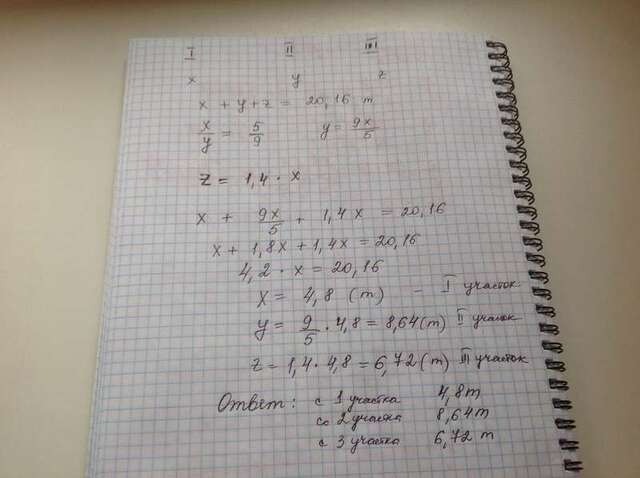 I II III
x y z
x + y + z = 20,16 т
x/y = 5/9 y = 9x/5
z = 1,4 · x
x + 9x/5 + 1,4x = 20,16
x + 1,8x + 1,4x = 20,16
4,2 · x = 20,16
x = 4,8 (т) - I участок
y = 9/5 · 4,8 = 8,64 (т) II участок
z = 1,4 · 4,8 = 6,72 (т) III участок
Ответ: с 1 участка 4,8 т
со 2 участка 8,64 т
с 3 участка 6,72 т